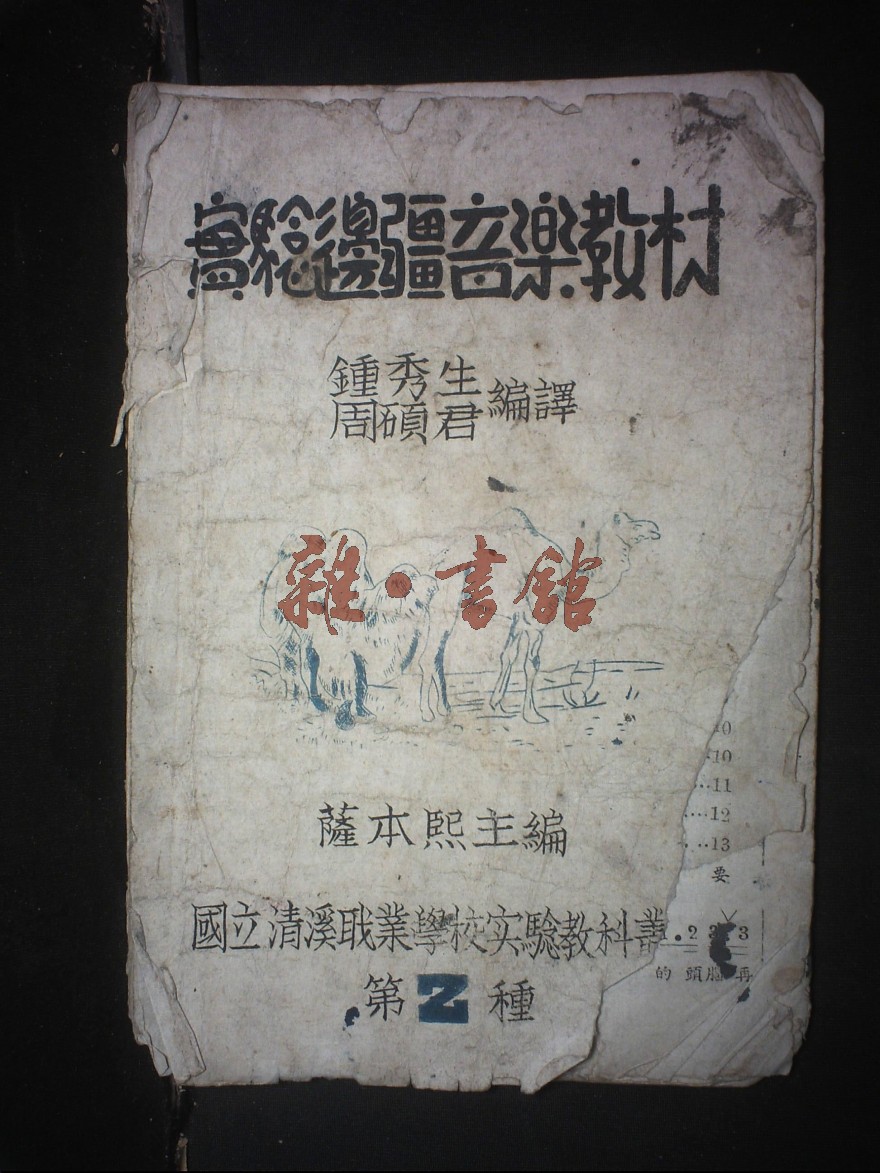 實驗邊疆音楽教材
鍾秀生
周碩君
編譯
雜·書舘
10
10
11
12
13
要
薩本熙主編
國立清溪職業學校实驗教科叢
2 3 3
的 頭 再
第2種